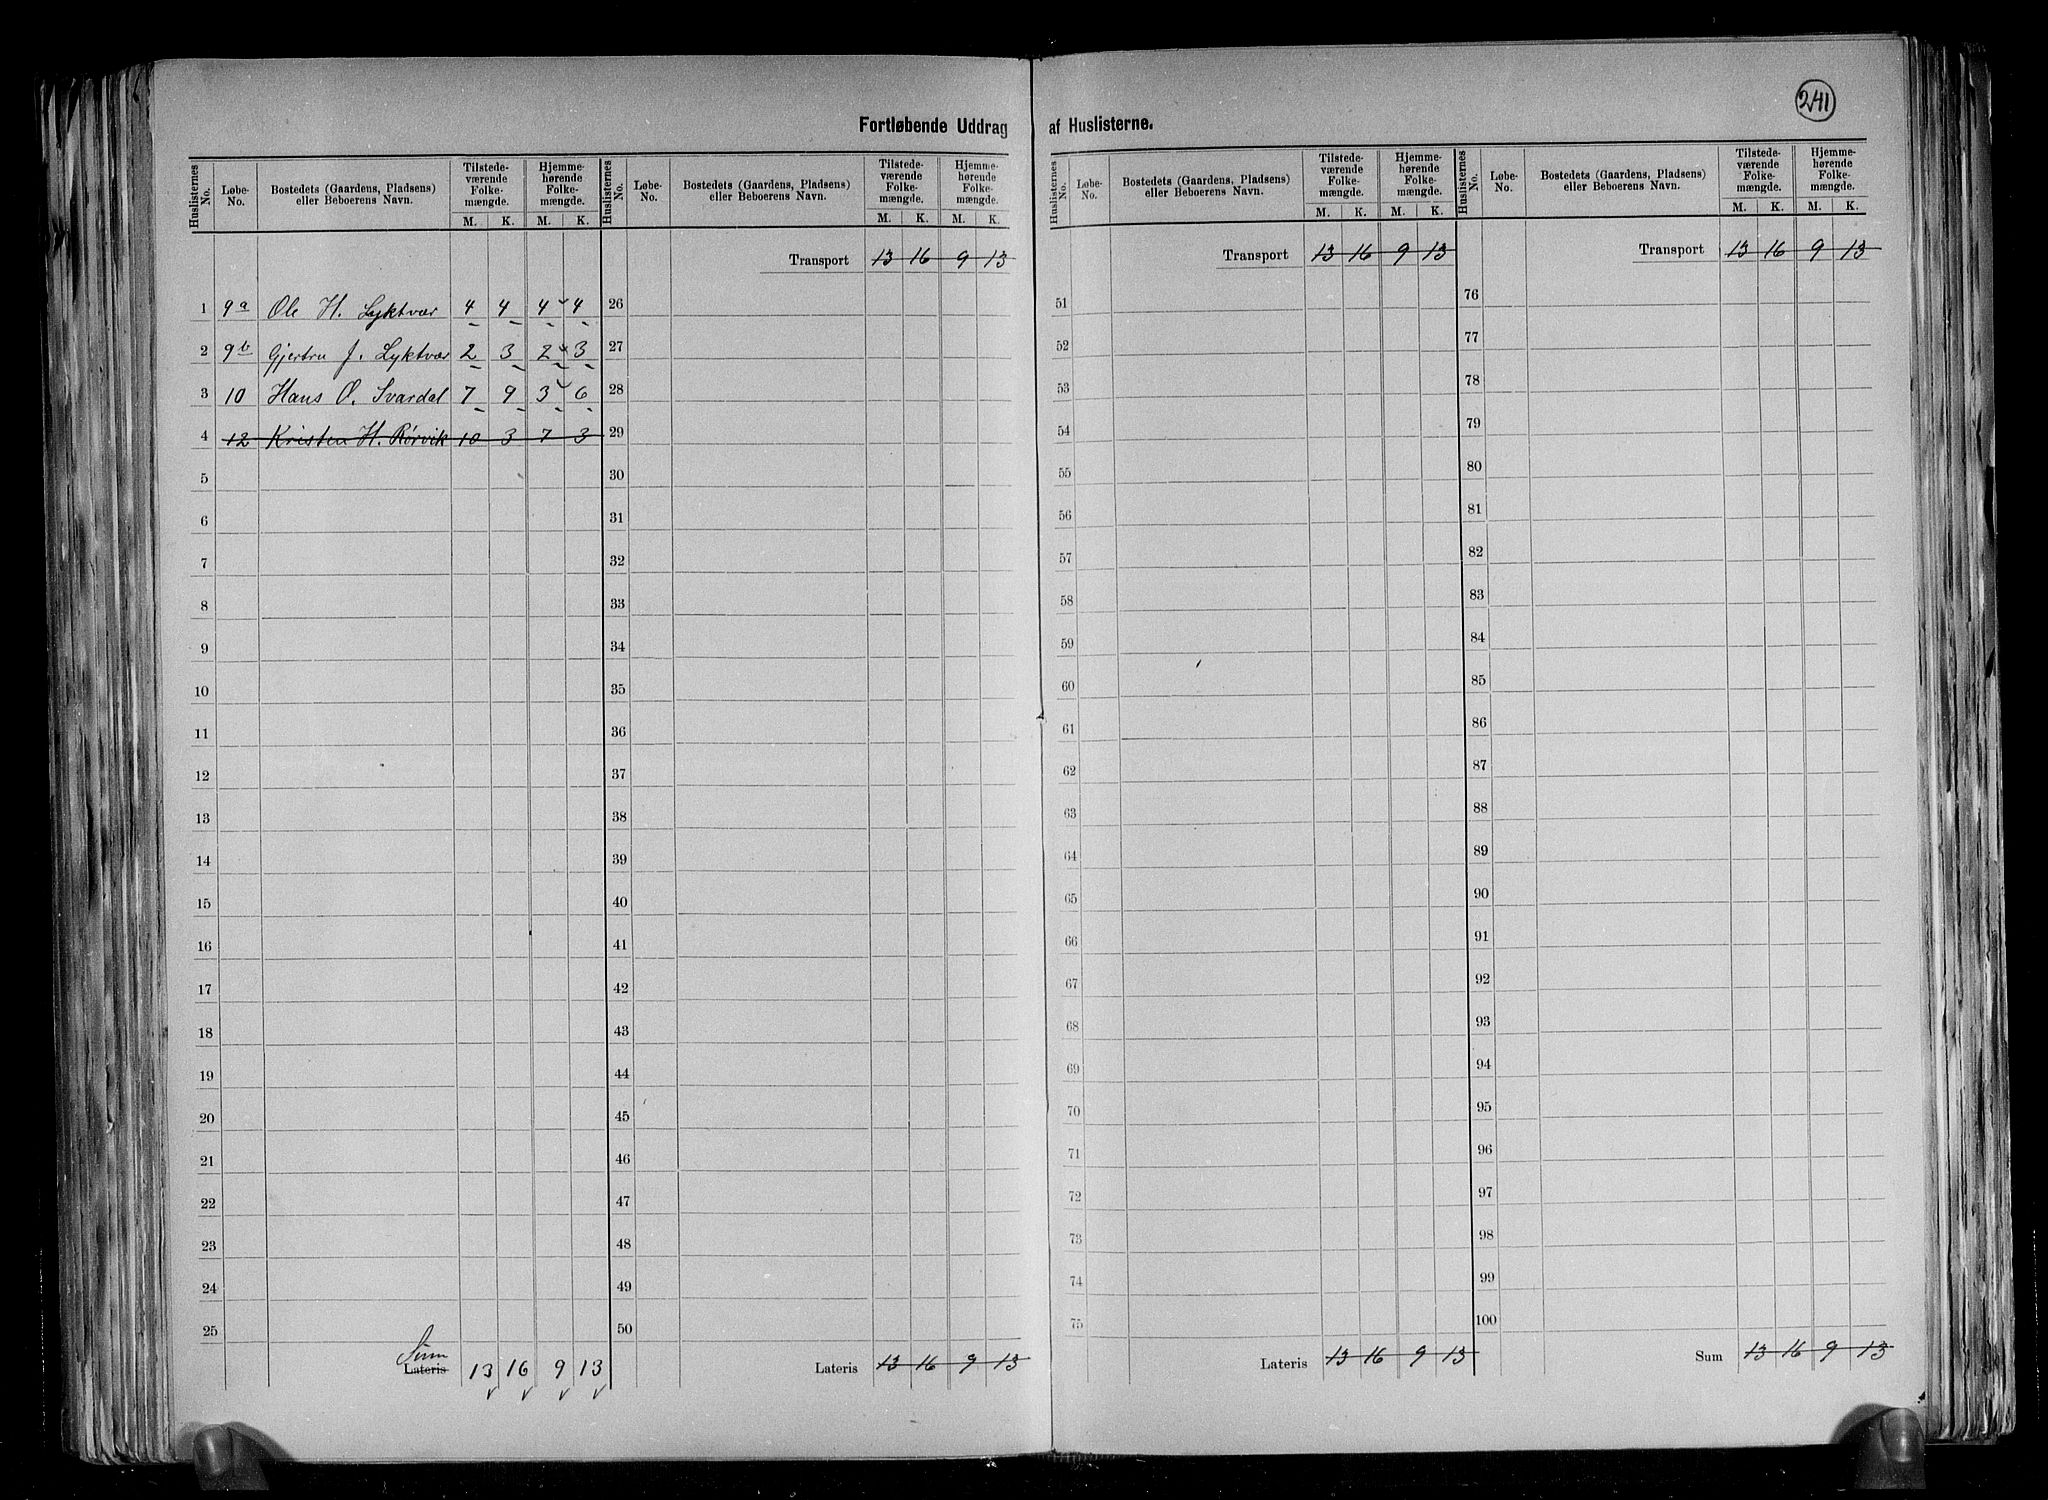 241
Fortløbende Uddrag af Huslisterne.
Huslisternes No. Løbe-No. Bostedets (Gaardens, Pladsens) eller Beboerens Navn. Tilstedeværende Folkemængde. M. K. Hjemmehørende Folkemængde. M. K.
1 9a Ole H. Lyktvær 4 4 4 4
2 9b Gjertru J. Lyktvær 2 3 2 3
3 10 Hans O. Svardal 7 9 3 6
4 12 Kristen H. Rørvik 10 3 7 3
5
6
7
8
9
10
11
12
13
14
15
16
17
18
19
20
21
22
23
24
25
Sum
Lateris 13 16 9 13
Huslisternes No. Løbe-No. Bostedets (Gaardens, Pladsens) eller Beboerens Navn. Tilstedeværende Folkemængde. M. K. Hjemmehørende Folkemængde. M. K.
Transport 13 16 9 13
26
27
28
29
30
31
32
33
34
35
36
37
38
39
40
41
42
43
44
45
46
47
48
49
50
Lateris 13 16 9 13
Huslisternes No. Løbe-No. Bostedets (Gaardens, Pladsens) eller Beboerens Navn. Tilstedeværende Folkemængde. M. K. Hjemmehørende Folkemængde. M. K.
Transport 13 16 9 13
51
52
53
54
55
56
57
58
59
60
61
62
63
64
65
66
67
68
69
70
71
72
73
74
75
Lateris 13 16 9 13
Huslisternes No. Løbe-No. Bostedets (Gaardens, Pladsens) eller Beboerens Navn. Tilstedeværende Folkemængde. M. K. Hjemmehørende Folkemængde. M. K.
Transport 13 16 9 13
76
77
78
79
80
81
82
83
84
85
86
87
88
89
90
91
92
93
94
95
96
97
98
99
100
Sum 13 16 9 13